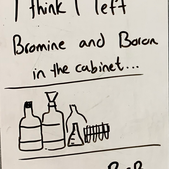 I think I left
Bromine and Boron
in the cabinet...